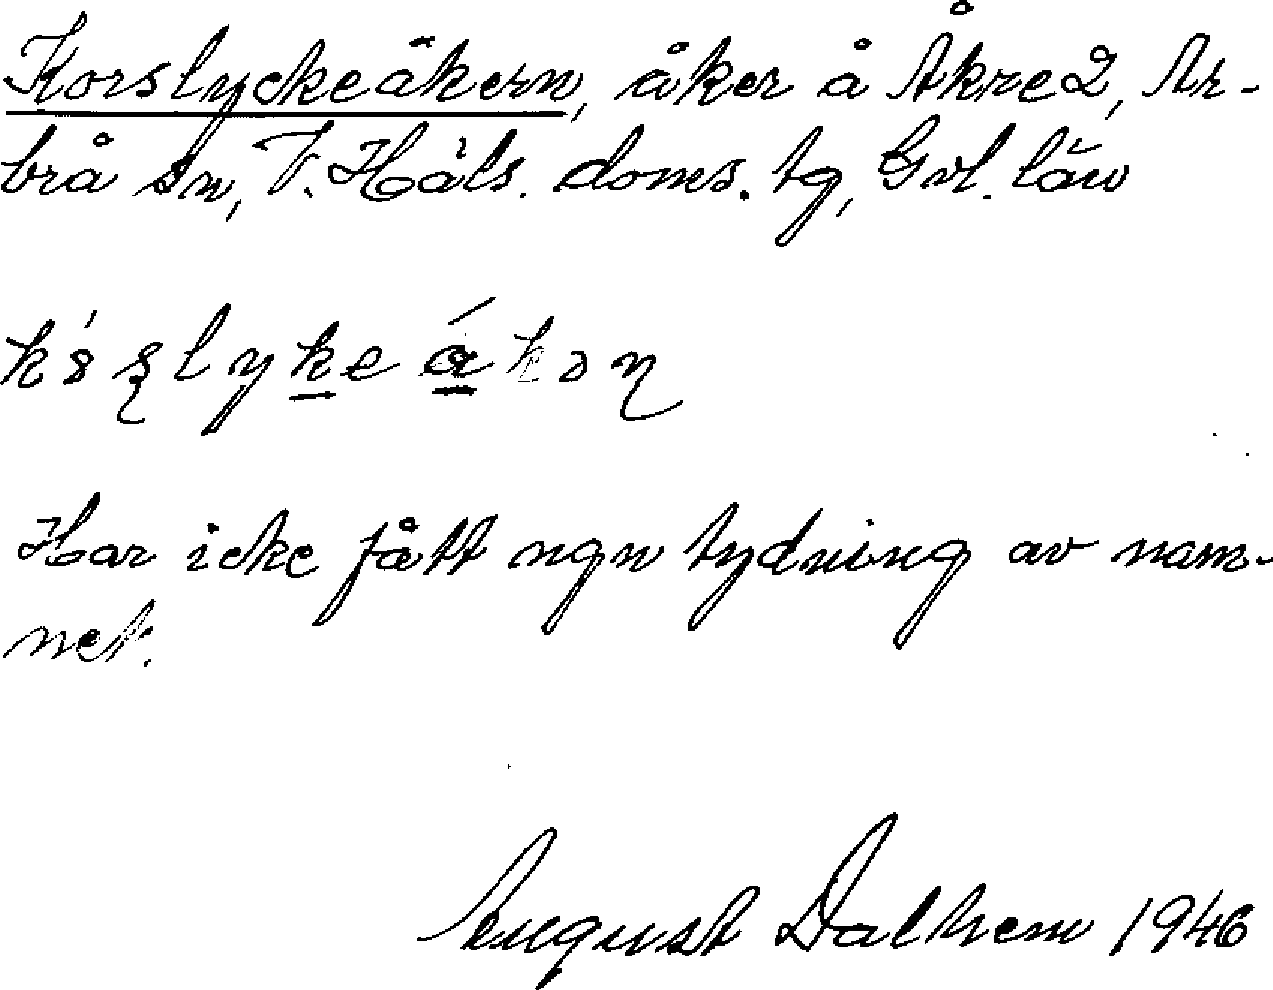 Korslyckeåkern, åker å Åkre 2, Ar-
brå sn, V. Häls. doms. tg, Gvl. län
Har icke fått ngn tydning av nam-
net.
August Dalhem 1946